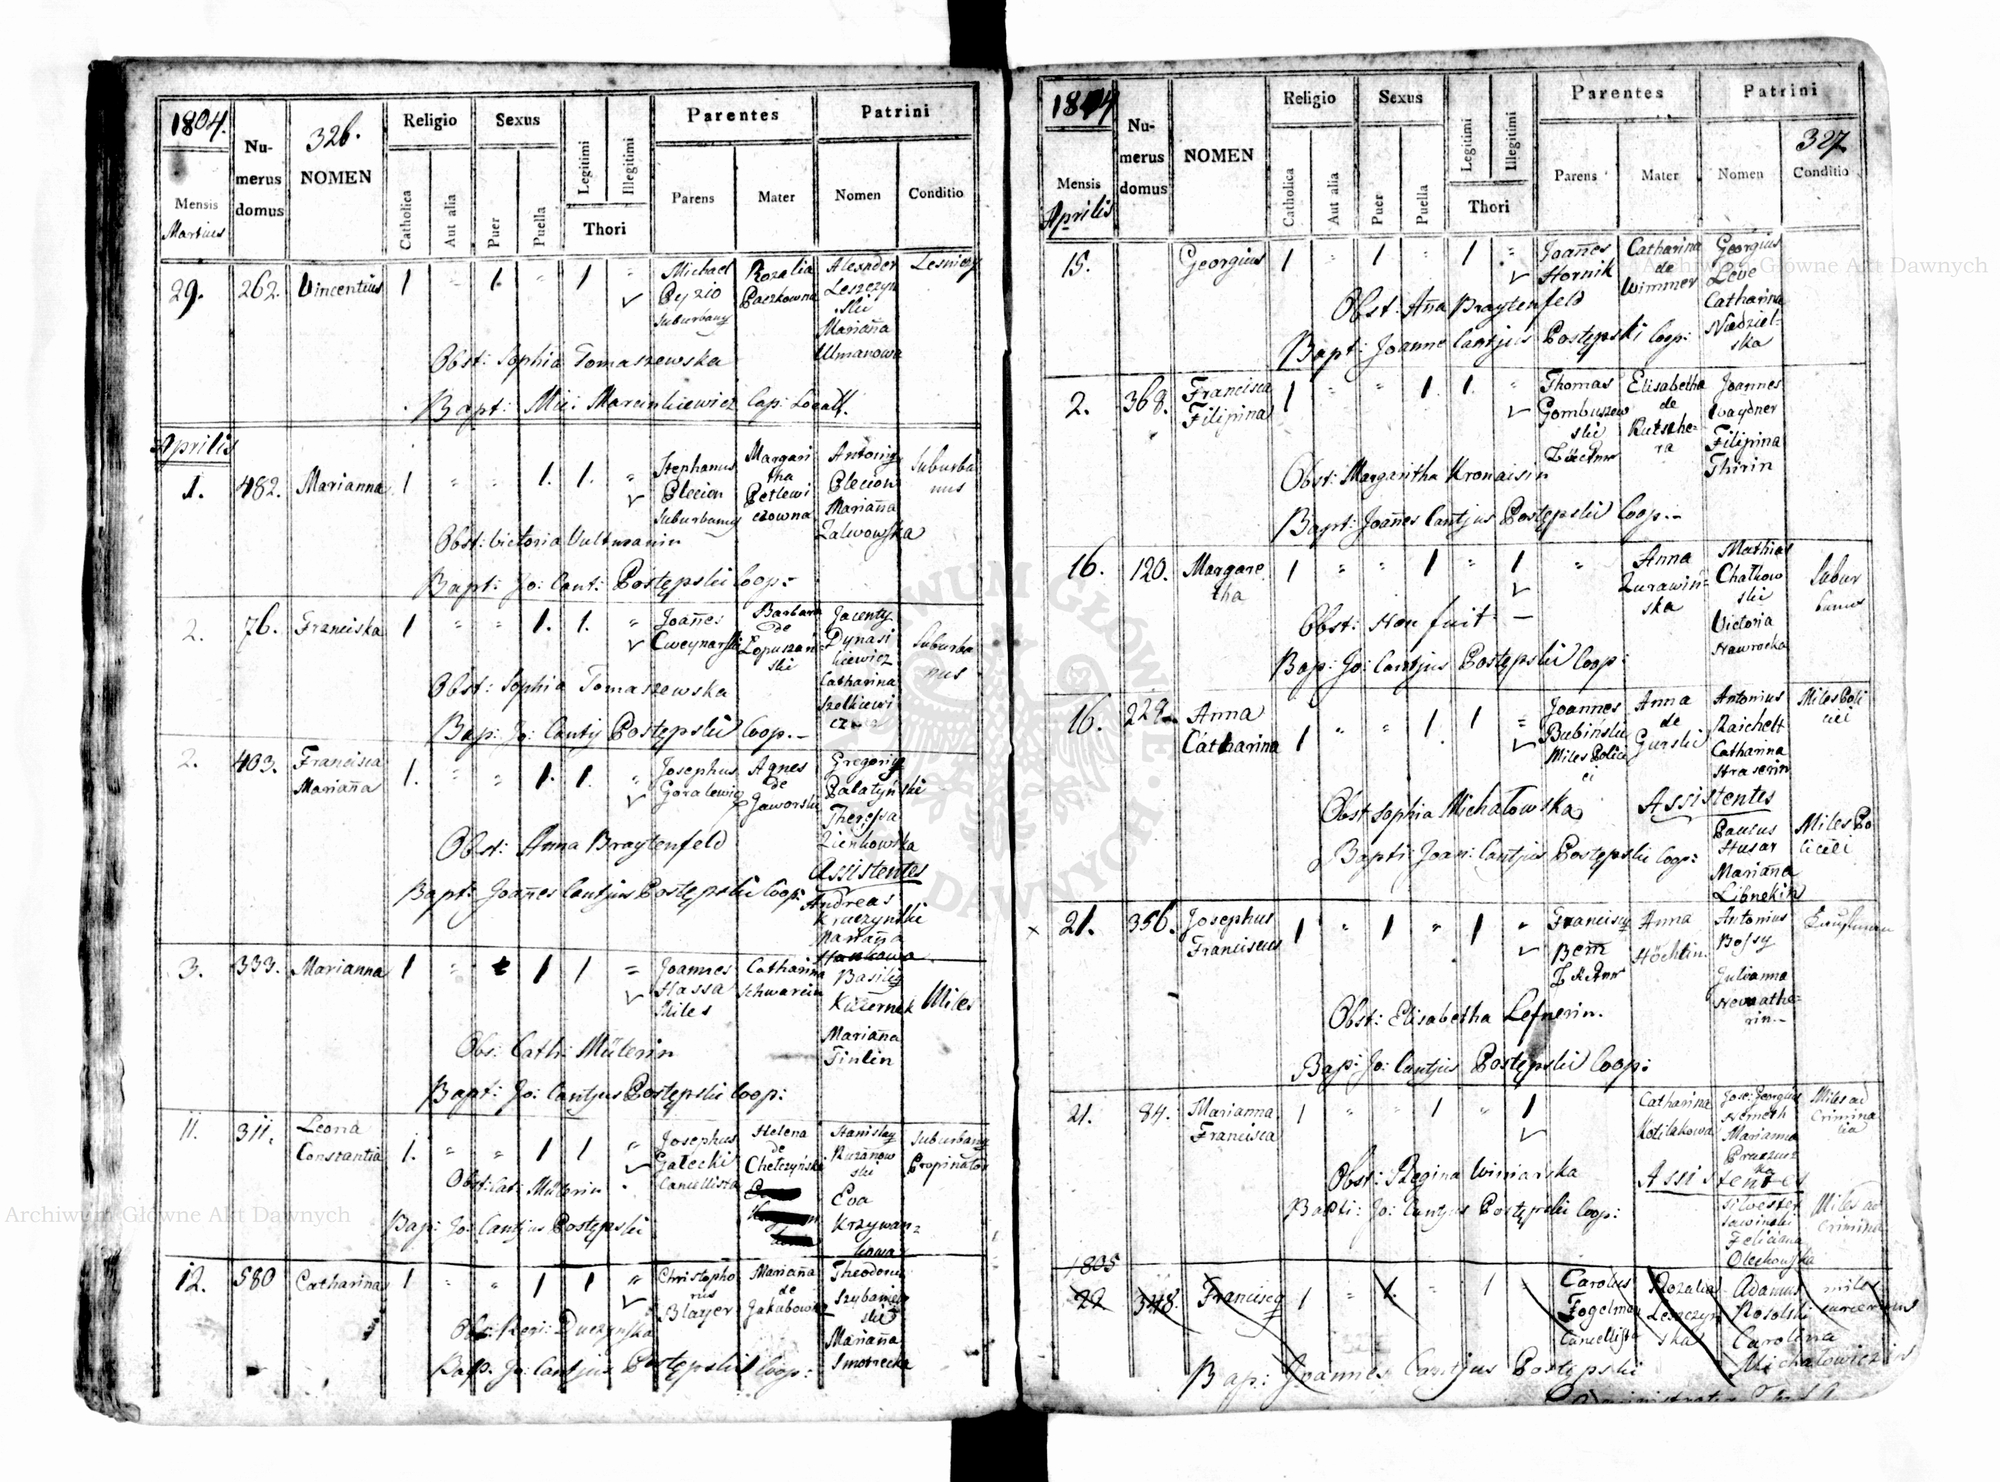 1804.
Numerus domus
326.
NOMEN
Religio
Sexus
Parentes
Patrini
Mensis
Martius
Catholica
Aut alia
Puer
Puella
Legitimi
Illegitimi
Thori
Parens
Mater
Nomen
Conditio
29. 262. Vincentius 1 " 1. " 1 "
Michael
Pyzio
Suburbanus
Rozalia
Paczkowna
Alexander
Leszczyn
ski
Marianna
Ulmanowa
Obst: Sophia Tomaszewska
Bapt: Marcinkiewicz Cap: Locall.
Aprilis
1. 482. Marianna 1 " " 1. 1. "
Stephanus
Plecion
Suburbanus
Margari
tha
Petlewi
czowna
Antonius
Plecion
Marianna
Zalwowska
Suburba
nus
Obst: Victoria Vultmanin
Bapt: Jo: Cant: Postępski Coop:-
2. 76. Franciska 1 " " 1. 1. "
Joañes
Cweynarski
Barbara
de
Łopuszań
ski
Jacenty
Dynasi
kiewicz
Catharina
Szelkiewi
Suburba
nus
Obst: Sophia Tomaszewska
Bap: Jo: Canty Postępski Coop.-
2. 403. Francisca
Mariaña 1. " " 1. 1. "
Josephus
Goralewicz
Agnes
de
Jaworski
Gregorius
Palatyński
Theressa
Zienkowska
Obst: Anna Braytenfeld
Assistentes
Bapt: Joañes Cantjus Postępski Coop:
Andreas
Kruczynski
Mariaña
3. 333. Marianna 1 " 1 1 "
Joannes
Hassa
Miles
Catharina
Schwarcin
Basilius
Kuzernek
Mariaña
Tinlin
Miles
Obs: Cath: Müllerin
Bapt: Jo: Cantjus Postępski Coop:
11. 311. Leona
Constantia 1. " " 1 1 "
Josephus
Gałecki
Cancellista
Helena
de
Chełczyński
Stanislaus
Ruzanow
ski
Eva
Krzywan=
kowa
Suburbanus
Propinator
Obst: Cat: Müllerin
Bap: Jo: Cantjus Postępski
12. 580 Catharina 1 " " 1 1 "
Christopho
rus
Blazyer
Mariaña
de
Jakubowicz
Theodorus
Szybanow
ski
Mariaña
Smotrecka
Obs: Regi: Duczynska
Bap: Jo: Cantjus Postępski Coop:
1804
Numerus domus
NOMEN
Religio
Sexus
Parentes
Patrini
327.
Mensis
Aprilis
Catholica
Aut alia
Puer
Puella
Legitimi
Illegitimi
Thori
Parens
Mater
Nomen
Conditio
15. Georgius 1 " 1 " 1 "
Joañes
Hornik
Catharina
de
Wimmer
Georgius
Leve
Catharina
Niedziel-
ska
Obst: Aña Braytenfeld
Bapt: Joanne Cantjus Postępski Coop:
2. 368. Francisca
Filipina 1 " " 1. 1. "
Thomas
Gombuszew
ski
Elisabetha
de
Kutsche-
ra
Joannes
Waydner
Filipina
Thirin
Obst: Margaritha Kronaisin
Bapt: Joañes Cantjus Postępski Coop.-
16. 120. Margare
tha 1 " " 1 " 1
"
Anna
Żurawiń=
ska
Mathias
Chałkow
ski
Victoria
Nawrocka
Subur
banus
Obst: Non fuit -
Bap: Jo: Cantjus Postępski Coop:
16. 229. Anna
Catharina 1 " " 1. 1 "
Joannes
Bubiński
Miles Polici
ei
Anna
de
Gurski
Antonius
Raichelt
Catharina
Straserin
Miles Poli
ciei
Obst Sophia Michałowska
Assistentes
Bapti: Joan: Cantjus Postępski Coop:
Paulus
Husar
Mariaña
Libnekin
Miles Po
liciei
x 21. 356. Josephus
Franciscus 1 " 1 " 1 "
Franciscus
Bem̃
Anna
Höchtin
Antonius
Bossy
Julianna
Obst: Elisabetha Lefnerin.
Bap: Jo: Cantjus Postępski Coop:
21. 84. Marianna
Francisca 1 " " 1 " 1
Catharina
Kotilakowa
Jose: Georgius
Nemeth
Marianna
Miles ad
Crimina
lia
Obst: Regina Winiarska
Assistentes
Bapti: Jo: Cantjus Postępski Coop:
Silvester
Sawinski
Feliciana
Olechowska
Miles ad
Crimina
1805
22 348. Franciscus 1 " 1. " 1 "
Carolus
Fogelman
Cancellista
Rozalia
Leszczyn
ska
Adamus
Rosolski
Carolina
Michałowiczin
Bap: Joannes Cantjus Postępski
Archiwum Główne Akt Dawnych
Archiwum Główne Akt Dawnych
ARCHIWUM GŁÓWNE AKT DAWNYCH